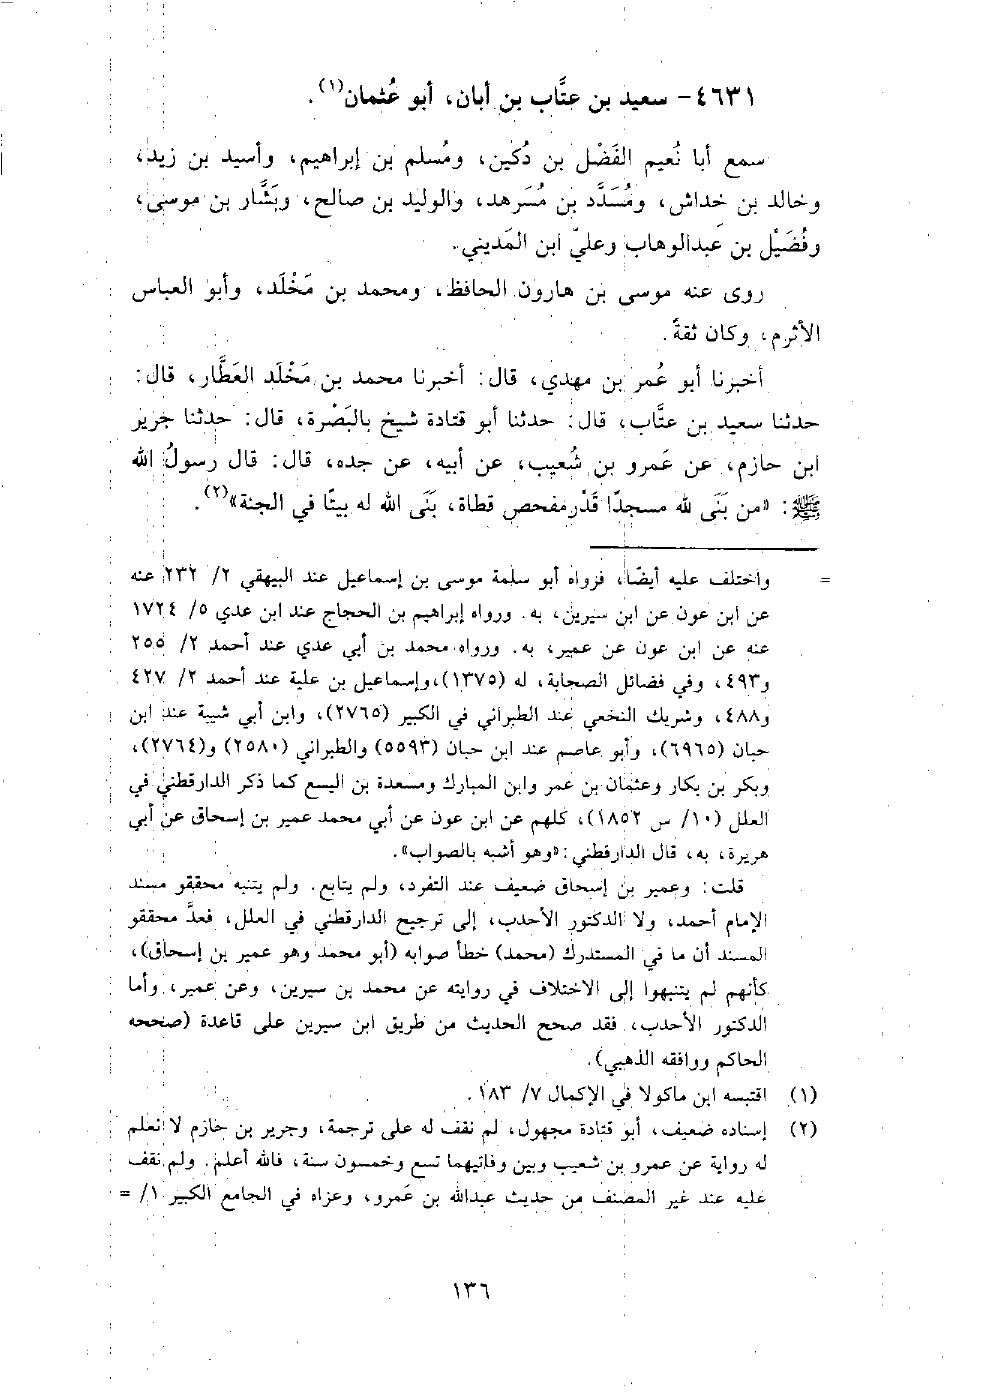 ٤٦٣١- سعيد بن عتَّاب بن أبان، أبو عُثمان(١).
سمع أبا نُعيم الفَضْل بن دُكين، ومُسلم بن إبراهيم، وأسيد بن زيد،
وخالد بن خداش، ومُسَدَّد بن مُسَرهد، والوليد بن صالح، وبَشَّار بن موسى،
وفُضَيْل بن عبدالوهاب وعليّ ابن المَديني.
روى عنه موسى بن هارون الحافظ، ومحمد بن مَخْلَد، وأبو العباس
الأثرم، وكان ثقةً.
أخبرنا أبو عُمر بن مهدي، قال: أخبرنا محمد بن مَخْلَد العَطَّار، قال:
حدثنا سعيد بن عتَّاب، قال: حدثنا أبو قتادة شيخ بالبَصْرة، قال: حدثنا جرير
ابن حازم، عن عَمرو بن شُعيب، عن أبيه، عن جده، قال: قال رسولُ الله
ﷺ: «من بَنَى لله مسجدًا قَدْر مفحص قطاة، بَنَى الله له بيتًا في الجنة»(٢).
= واختلف عليه أيضًا، فرواه أبو سلمة موسى بن إسماعيل عند البيهقي ٢/ ٢٣٢ عنه
عن ابن عون عن ابن سيرين، به. ورواه إبراهيم بن الحجاج عند ابن عدي ٥/ ١٧٢٤
عنه عن ابن عون عن عمير، به. ورواه محمد بن أبي عدي عند أحمد ٢/ ٢٥٥
و٤٩٣، وفي فضائل الصحابة، له (١٣٧٥)، وإسماعيل بن علية عند أحمد ٢/ ٤٢٧
و٤٨٨، وشريك النخعي عند الطبراني في الكبير (٢٧٦٥)، وابن أبي شيبة عند ابن
حبان (٦٩٦٥)، وأبو عاصم عند ابن حبان (٥٥٩٣) والطبراني (٢٥٨٠) و(٢٧٦٤)،
وبكر بن بكار وعثمان بن عمر وابن المبارك ومسعدة بن اليسع كما ذكر الدارقطني في
العلل (١٠/ س ١٨٥٢)، كلهم عن ابن عون عن أبي محمد عمير بن إسحاق عن أبي
هريرة، به، قال الدارقطني: «وهو أشبه بالصواب».
قلت: وعمير بن إسحاق ضعيف عند التفرد، ولم يتابع. ولم يتنبه محققو مسند
الإمام أحمد، ولا الدكتور الأحدب، إلى ترجيح الدارقطني في العلل، فعدَّ محققو
المسند أن ما في المستدرك (محمد) خطأ صوابه (أبو محمد وهو عمير بن إسحاق)،
كأنهم لم يتنبهوا إلى الاختلاف في روايته عن محمد بن سيرين، وعن عمير، وأما
الدكتور الأحدب، فقد صحح الحديث من طريق ابن سيرين على قاعدة (صححه
الحاكم ووافقه الذهبي).
(١) اقتبسه ابن ماكولا في الإكمال ٧/ ١٨٣.
(٢) إسناده ضعيف، أبو قتادة مجهول، لم نقف له على ترجمة، وجرير بن حازم لا نعلم
له رواية عن عمرو بن شعيب وبين وفاتيهما تسع وخمسون سنة، فالله أعلم. ولم نقف
عليه عند غير المصنف من حديث عبدالله بن عَمرو، وعزاه في الجامع الكبير ١/ =
١٣٦